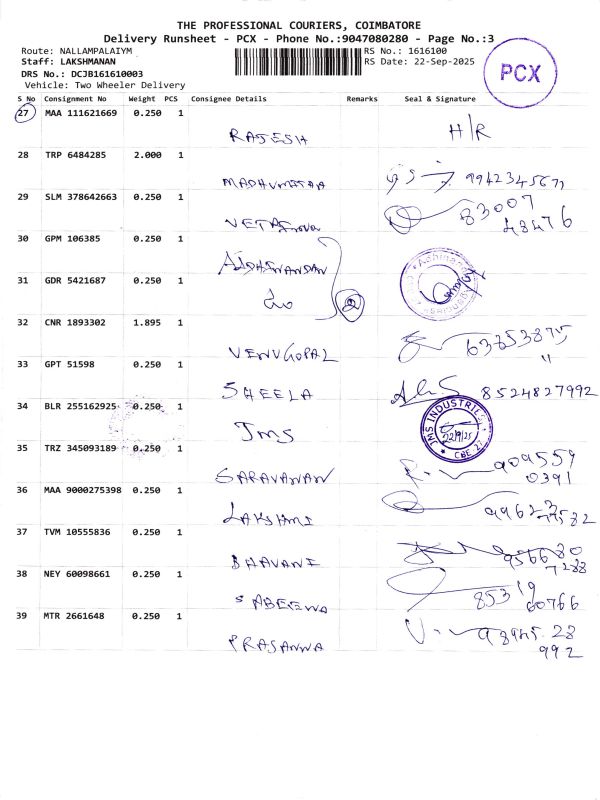 THE PROFESSIONAL COURIERS, COIMBATORE
Delivery Runsheet - PCX - Phone No.:9047080280 - Page No.:3
Route: NALLAMPALAIYM RS No.: 1616100
Staff: LAKSHMANAN RS Date: 22-Sep-2025
DRS No.: DCJB161610003
Vehicle: Two Wheeler Delivery
PCX
S No Consignment No Weight PCS Consignee Details Remarks Seal & Signature
27 MAA 111621669 0.250 1
RAJESH H/R
28 TRP 6484285 2.000 1
MADHUMITAA
29 SLM 378642663 0.250 1
83007
48476
30 GPM 106385 0.250 1
31 GDR 5421687 0.250 1
do 2
32 CNR 1893302 1.895 1
VENUGOPAL
33 GPT 51598 0.250 1
SHEELA 8524827992
34 BLR 255162925 0.250 1
JMS JMS INDUSTRIES 22/9/25 CBE-27
35 TRZ 345093189 0.250 1
SARAVANAN 909559
0391
36 MAA 9000275398 0.250 1
LAKSHMI
37 TVM 10555836 0.250 1
BHAVANI
38 NEY 60098661 0.250 1
SABEENA 85319
60766
39 MTR 2661648 0.250 1
PRASANNA
992